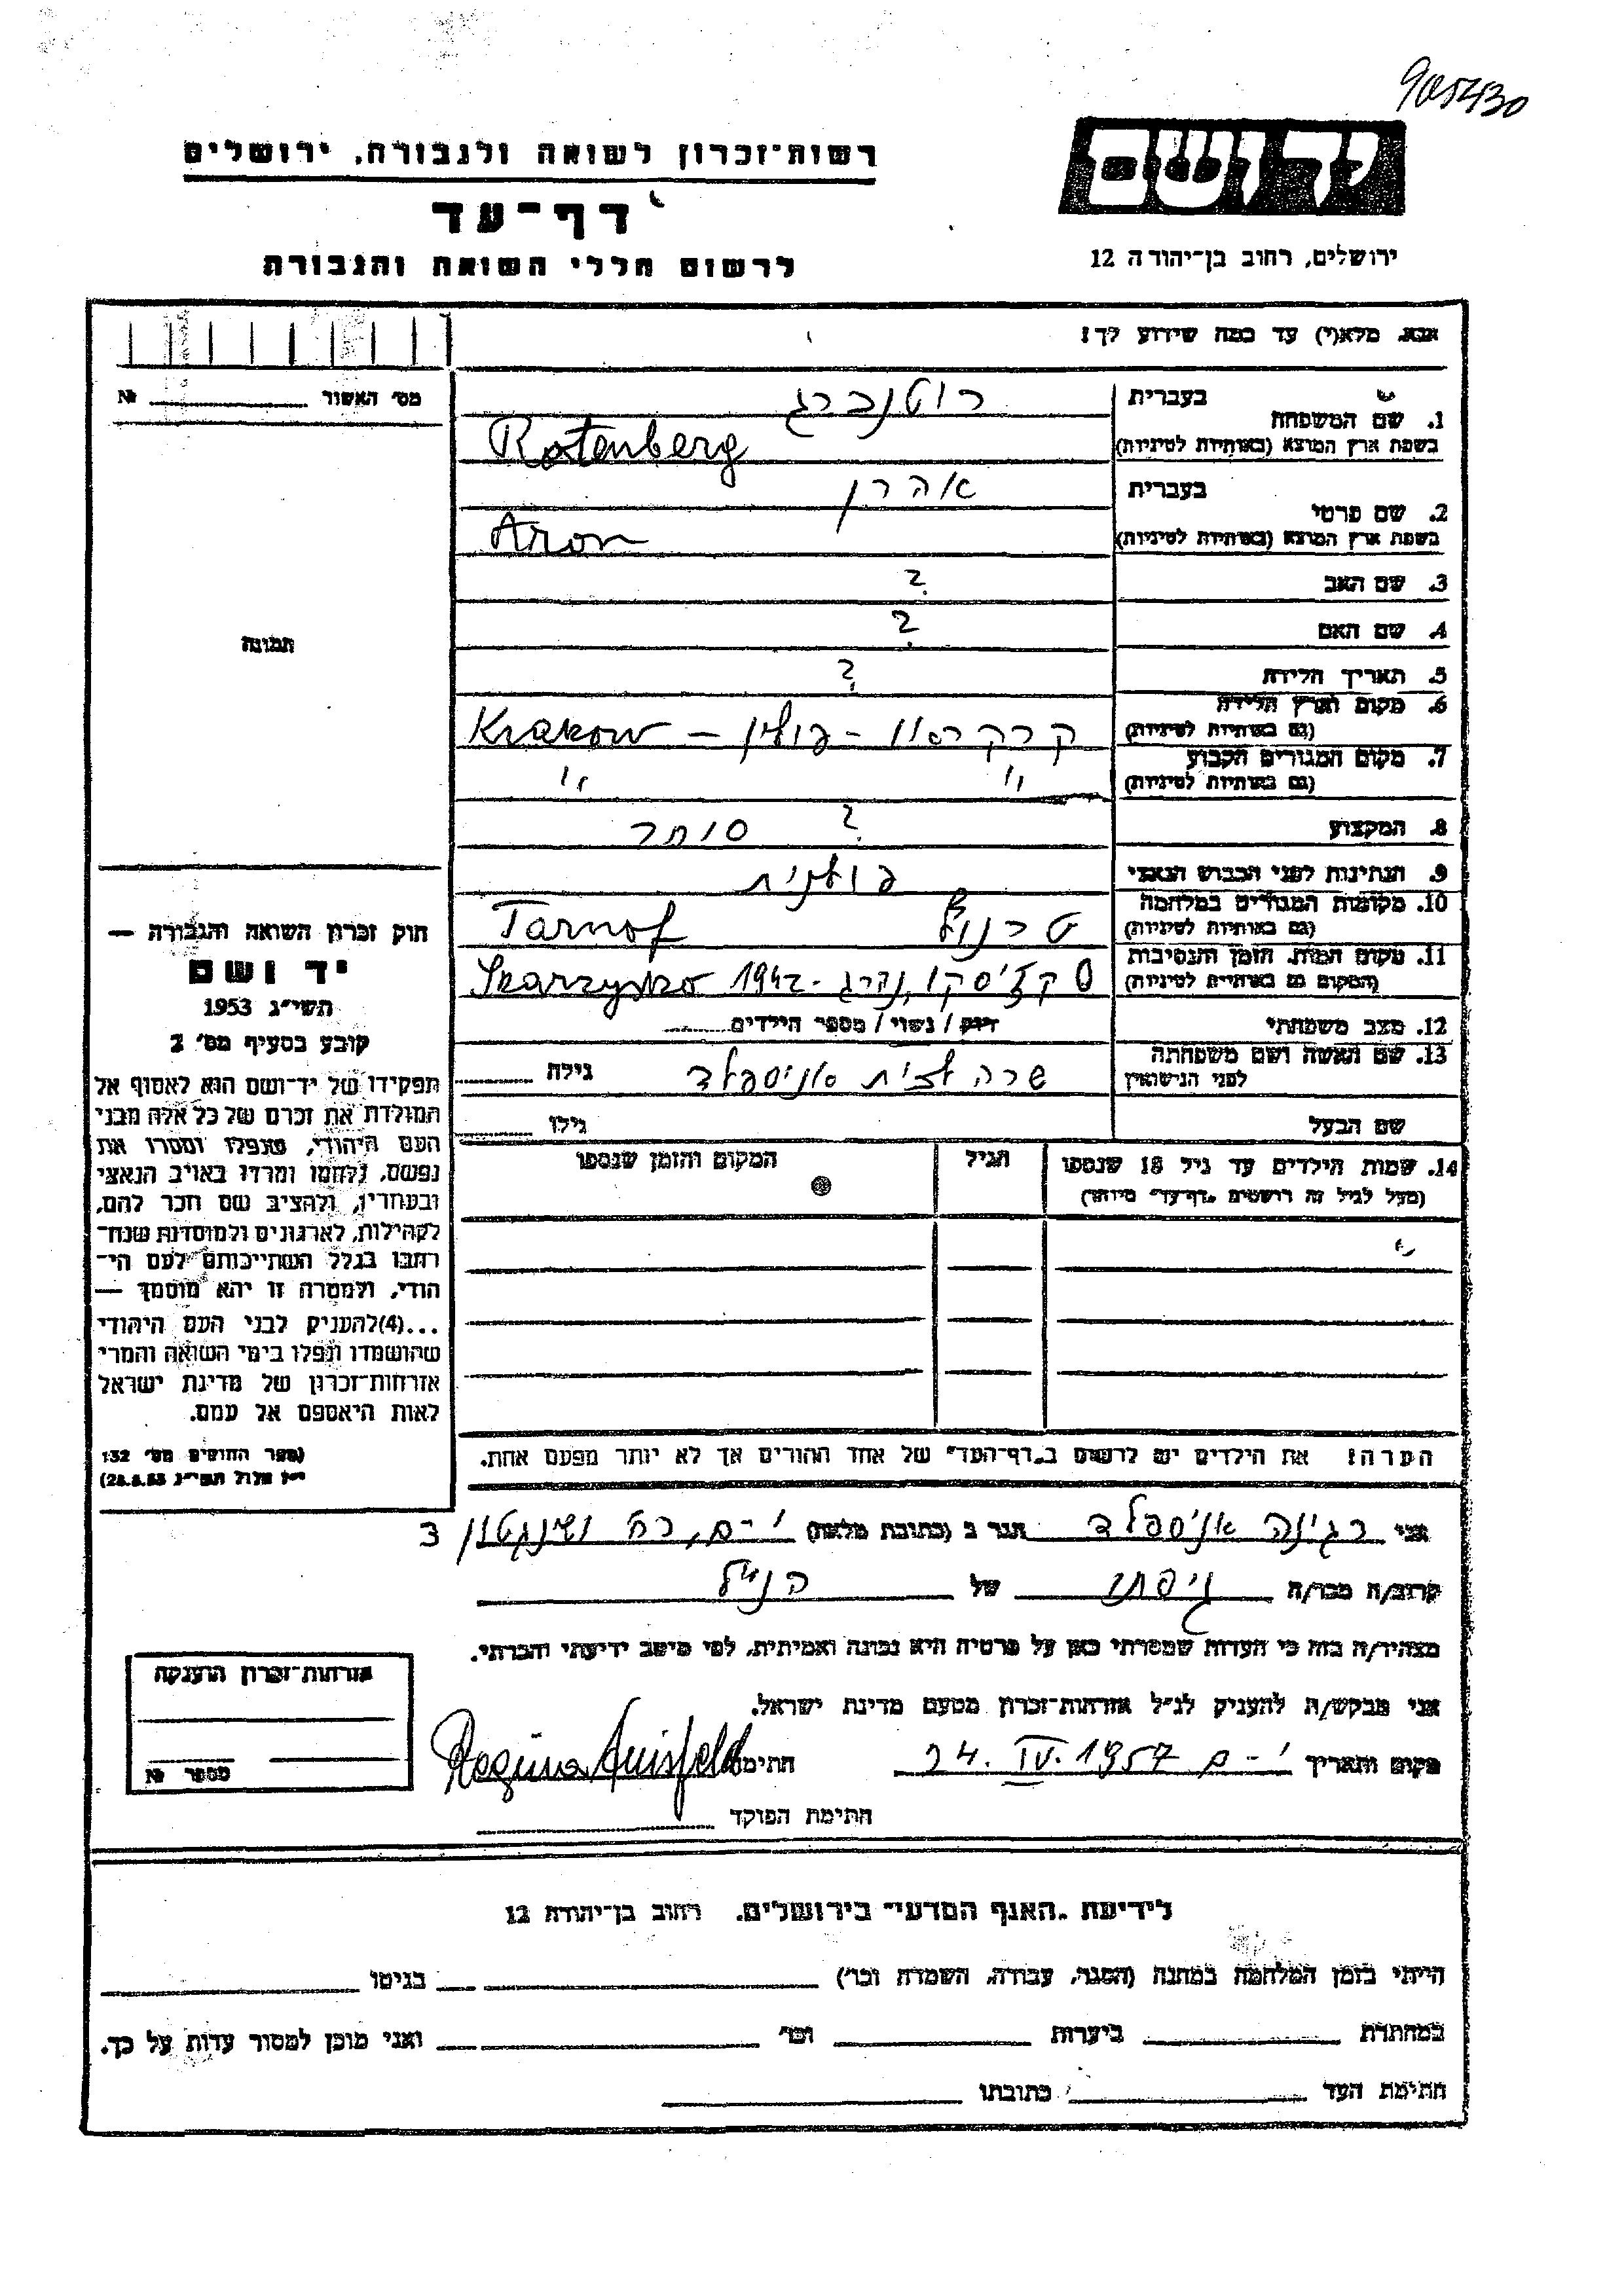 905430
רשות־זכרון לשואה ולגבורה, ירושלים
דף־עד
לרשום חללי השואה והגבורה
יד ושם
ירושלים, רחוב בן־יהודה 12
אנא, מלא(י) עד כמה שידוע לך!
מס׳ האשור № ____
תמונה
1. שם המשפחה בעברית רוטנברג
בשפת ארץ המוצא (באותיות לטיניות) Rotenberg
2. שם פרטי בעברית אהרן
בשפת ארץ המוצא (באותיות לטיניות) Aron
3. שם האב ?
4. שם האם ?
5. תאריך הלידה ?
6. מקום וארץ הלידה (גם באותיות לטיניות) קרקוב – פולין – Krakow
7. מקום המגורים הקבוע (גם באותיות לטיניות) " "
8. המקצוע ? סוחר
9. הנתינות לפני הכבוש הנאצי פולנית
10. מקומות המגורים במלחמה (גם באותיות לטיניות) Tarnof
11. מקום המות, הזמן והנסיבות (המקום גם באותיות לטיניות) נהרג - 1942 Skarzysko
12. מצב משפחתי רווק / נשוי / מספר הילדים
13. שם האשה ושם משפחתה לפני הנישואין שרה לבית אניספלד גילה
שם הבעל גילו
14. שמות הילדים עד גיל 18 שנספו
(מעל לגיל זה רושמים „דף־עד״ מיוחד)
הגיל
המקום והזמן שנספו
הערה! את הילדים יש לרשום ב„דף־העד״ של אחד ההורים אך לא יותר מפעם אחת.
חוק זכרון השואה והגבורה —
יד ושם
תשי״ג 1953
קובע בסעיף מס׳ 2
תפקידו של יד־ושם הוא לאסוף אל
המולדת את זכרם של כל אלה מבני
העם היהודי, שנפלו ומסרו את
נפשם, נלחמו ומרדו באויב הנאצי
ובעוזריו, ולהציב שם וזכר להם,
לקהילות, לארגונים ולמוסדות שנח־
רבו בגלל השתייכותם לעם הי־
הודי, ולמטרה זו יהא מוסמך —
...(4)להעניק לבני העם היהודי
שהושמדו ונפלו בימי השואה והמרי
אזרחות־זכרון של מדינת ישראל
לאות היאספם אל עמם.
(ספר החוקים מס׳ 132
י״ז אלול תשי״ג 28.8.53)
אני רגינה אניספלד הגר ב (כתובת מלאה) י-ם, רח ושינגטון 3
קרוב/ה מכר/ה גיסתו של הנ״ל
מצהיר/ה בזה כי העדות שמסרתי כאן על פרטיה היא נכונה ואמיתית, לפי מיטב ידיעתי והכרתי.
אני מבקש/ת להעניק לנ״ל אזרחות־זכרון מטעם מדינת ישראל.
מקום ותאריך י-ם 24. IV. 1957 חתימה Regina Anisfeld
חתימת הפוקד
אזרחות־זכרון הוענקה
מספר №
לידיעת „האגף המדעי״ בירושלים, רחוב בן־יהודה 12
הייתי בזמן המלחמה במחנה (הסגר, עבודה, השמדה וכו׳) בגיטו
במחתרת ביערות וכו׳ ואני מוכן למסור עדות על כך.
חתימת העד כתובתו